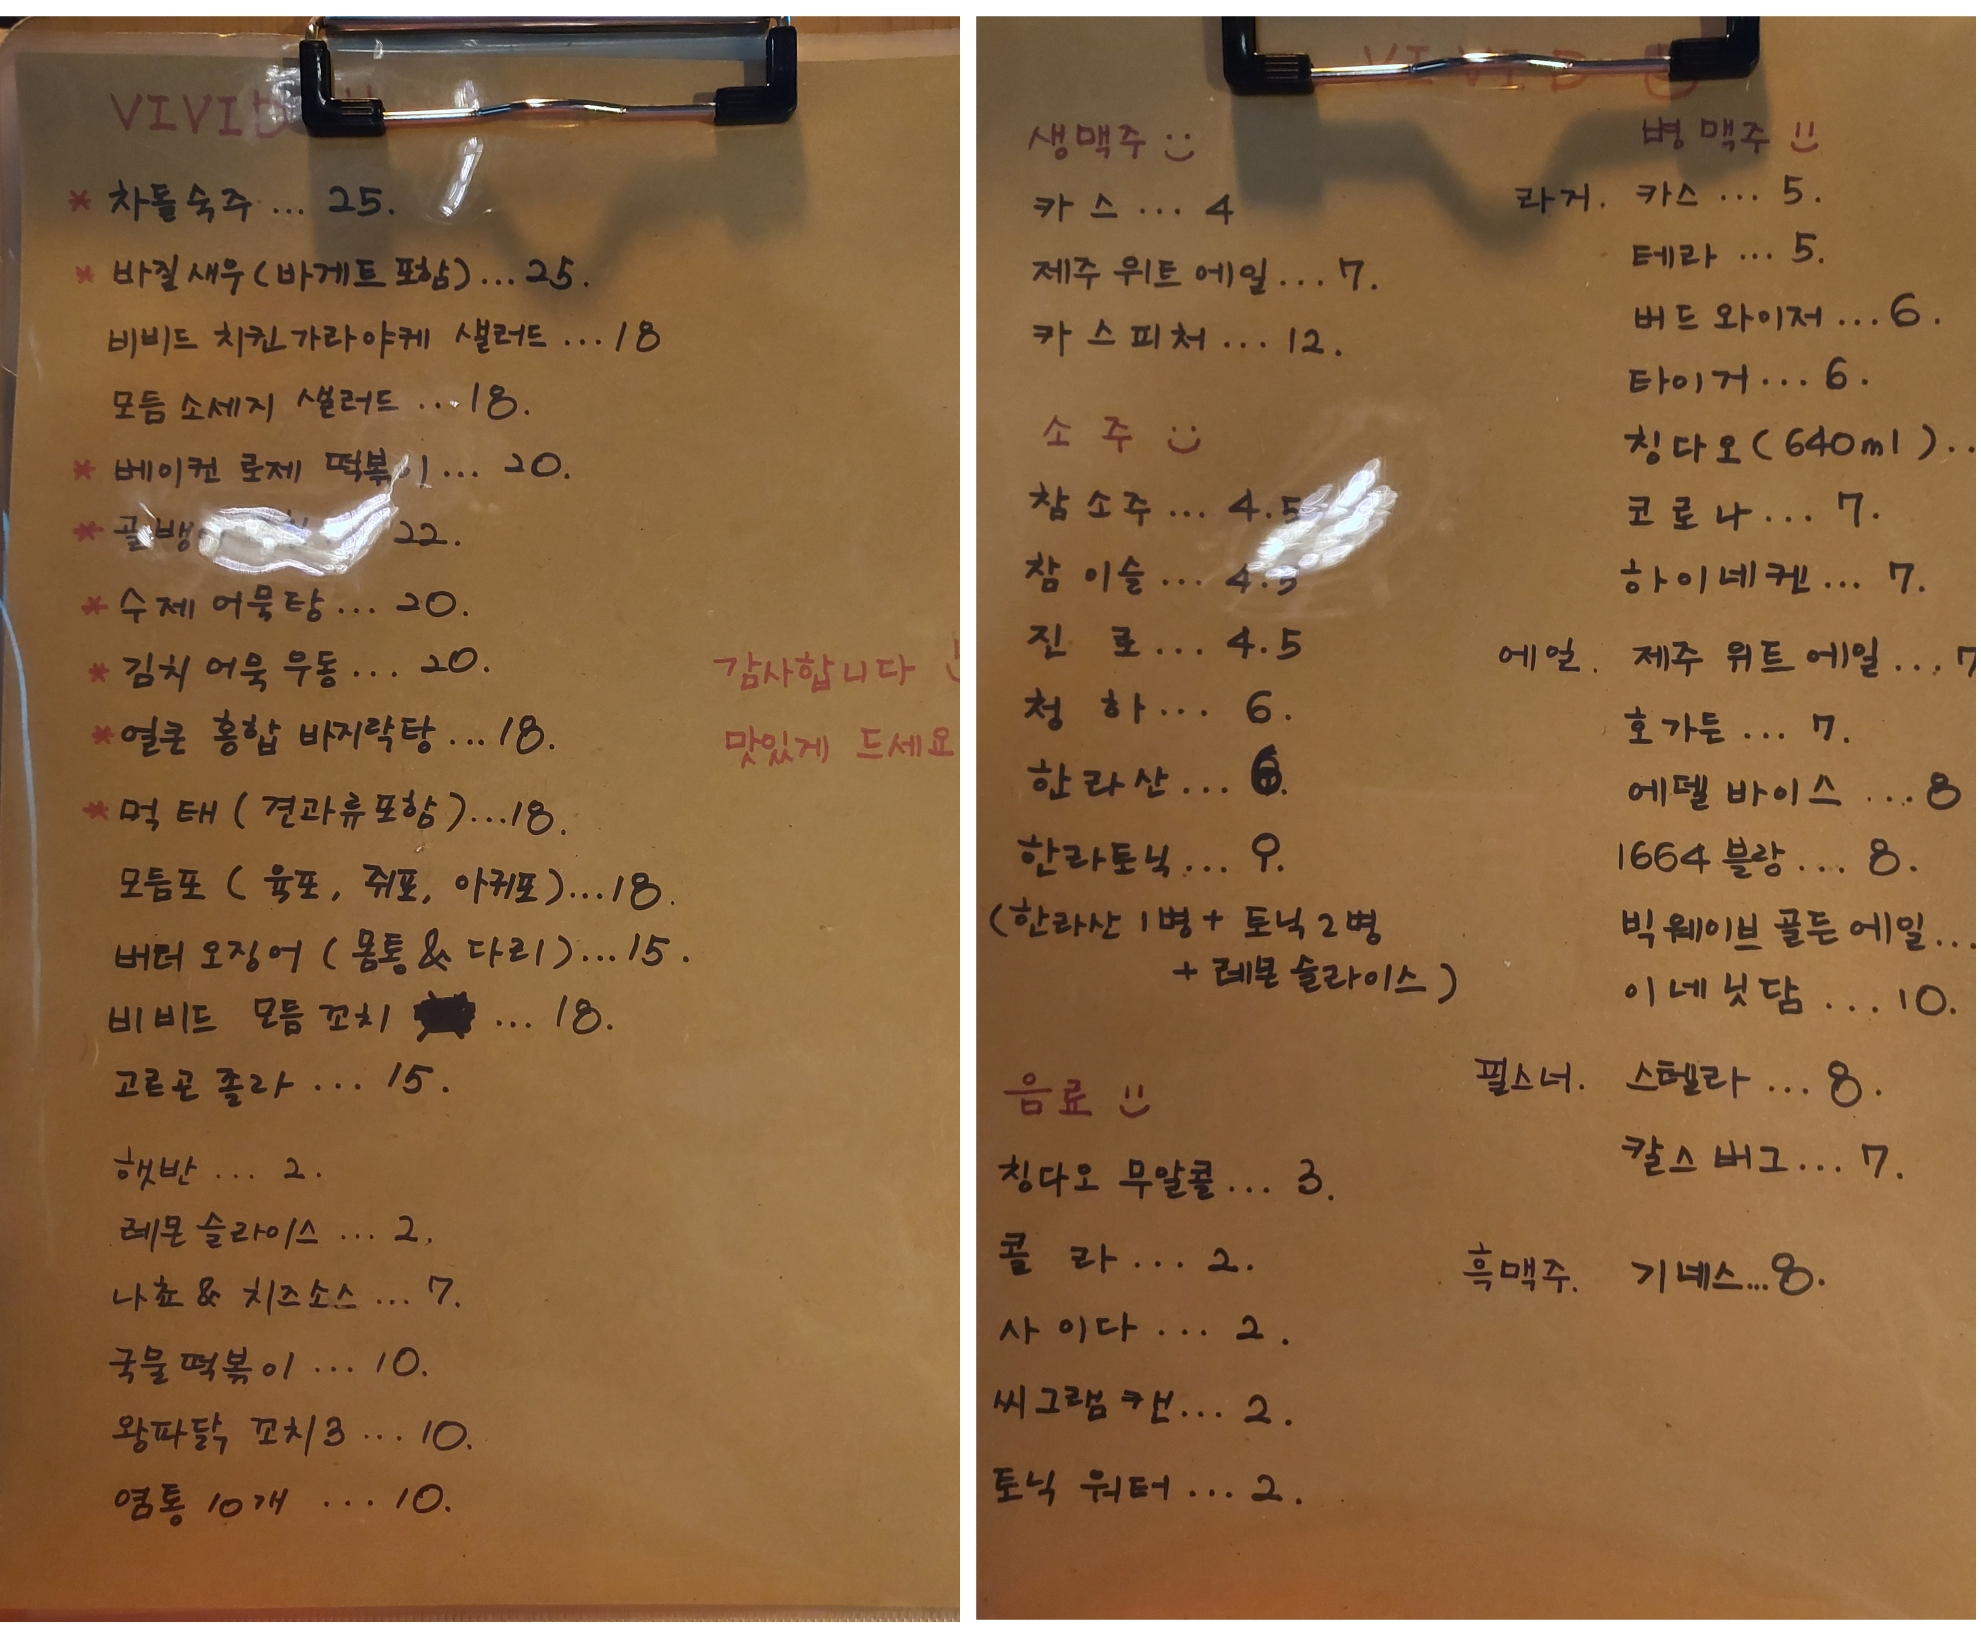 VIVID
* 차돌숙주 ... 25.
* 바질새우(바게트 포함)... 25.
비비드 치킨가라야케 샐러드 ... 18
모듬 소세지 샐러드 ... 18.
* 베이컨 로제 떡볶이... 20.
* 22.
* 수제 어묵탕... 20.
* 김치 어묵 우동... 20.
* 얼큰 홍합 바지락탕... 18.
* 먹태(견과류포함)... 18.
모듬포 (육포, 쥐포, 아귀포)... 18.
버터 오징어 (몸통 & 다리)... 15.
비비드 모듬 꼬치 ... 18.
고르곤 졸라 ... 15.
햇반 ... 2.
레몬 슬라이스 ... 2.
나쵸 & 치즈소스 ... 7.
국물떡볶이 ... 10.
왕파닭 꼬치3 ... 10.
염통 10개 ... 10.
감사합니다
맛있게 드세요
VIVID
생맥주
카스 ... 4
제주 위트 에일... 7.
카스피처 ... 12.
소주
참소주 ... 4.5
참이슬 ... 4.5
진로... 4.5
청하... 6.
한라산... 6.
한라토닉... 9.
(한라산 1병 + 토닉 2병
+ 레몬 슬라이스)
음료
칭다오 무알콜... 3.
콜라... 2.
사이다 ... 2.
씨그램 캔... 2.
토닉 워터 ... 2.
병맥주
라거. 카스 ... 5.
테라 ... 5.
버드와이저 ... 6.
타이거... 6.
칭다오(640ml)..
코로나... 7.
하이네켄... 7.
에일. 제주 위트 에일... 7
호가든 ... 7.
에델바이스 ... 8
1664 블랑... 8.
빅웨이브 골든 에일...
이네딧담 ... 10.
필스너. 스텔라 ... 8.
칼스버그... 7.
흑맥주. 기네스... 8.